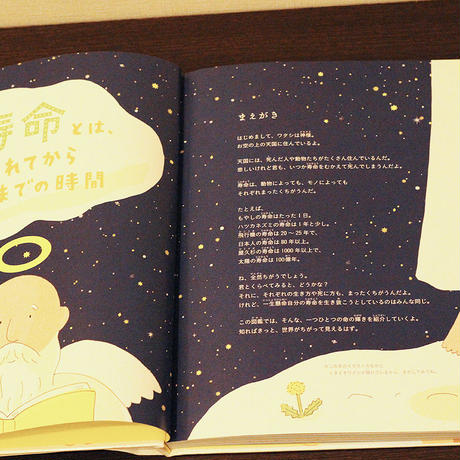 寿命とは、
れてから
までの時間
まえがき
はじめまして、ワタシは神様。
お空の上の天国に住んでいるよ。
天国には、死んだ人や動物たちがたくさん住んでいるんだ。
悲しいけれど君も、いつか寿命をむかえて死んでしまうんだよ。
寿命は、動物によっても、モノによっても
それぞれまったくちがうんだ。
たとえば、
もやしの寿命はたった1日。
ハツカネズミの寿命は1年と少し。
飛行機の寿命は20〜25年で、
日本人の寿命は80年以上。
屋久杉の寿命は1000年以上で、
太陽の寿命は100億年。
ね、全然ちがうでしょう。
君とくらべてみると、どうかな?
それに、それぞれの生き方や死に方も、まったくちがうんだよ。
けれど、一生懸命自分の寿命を生き抜こうとしているのはみんな同じ。
この図鑑では、そんな、一つひとつの命の輝きを紹介していくよ。
知ればきっと、世界がちがって見えるはず。